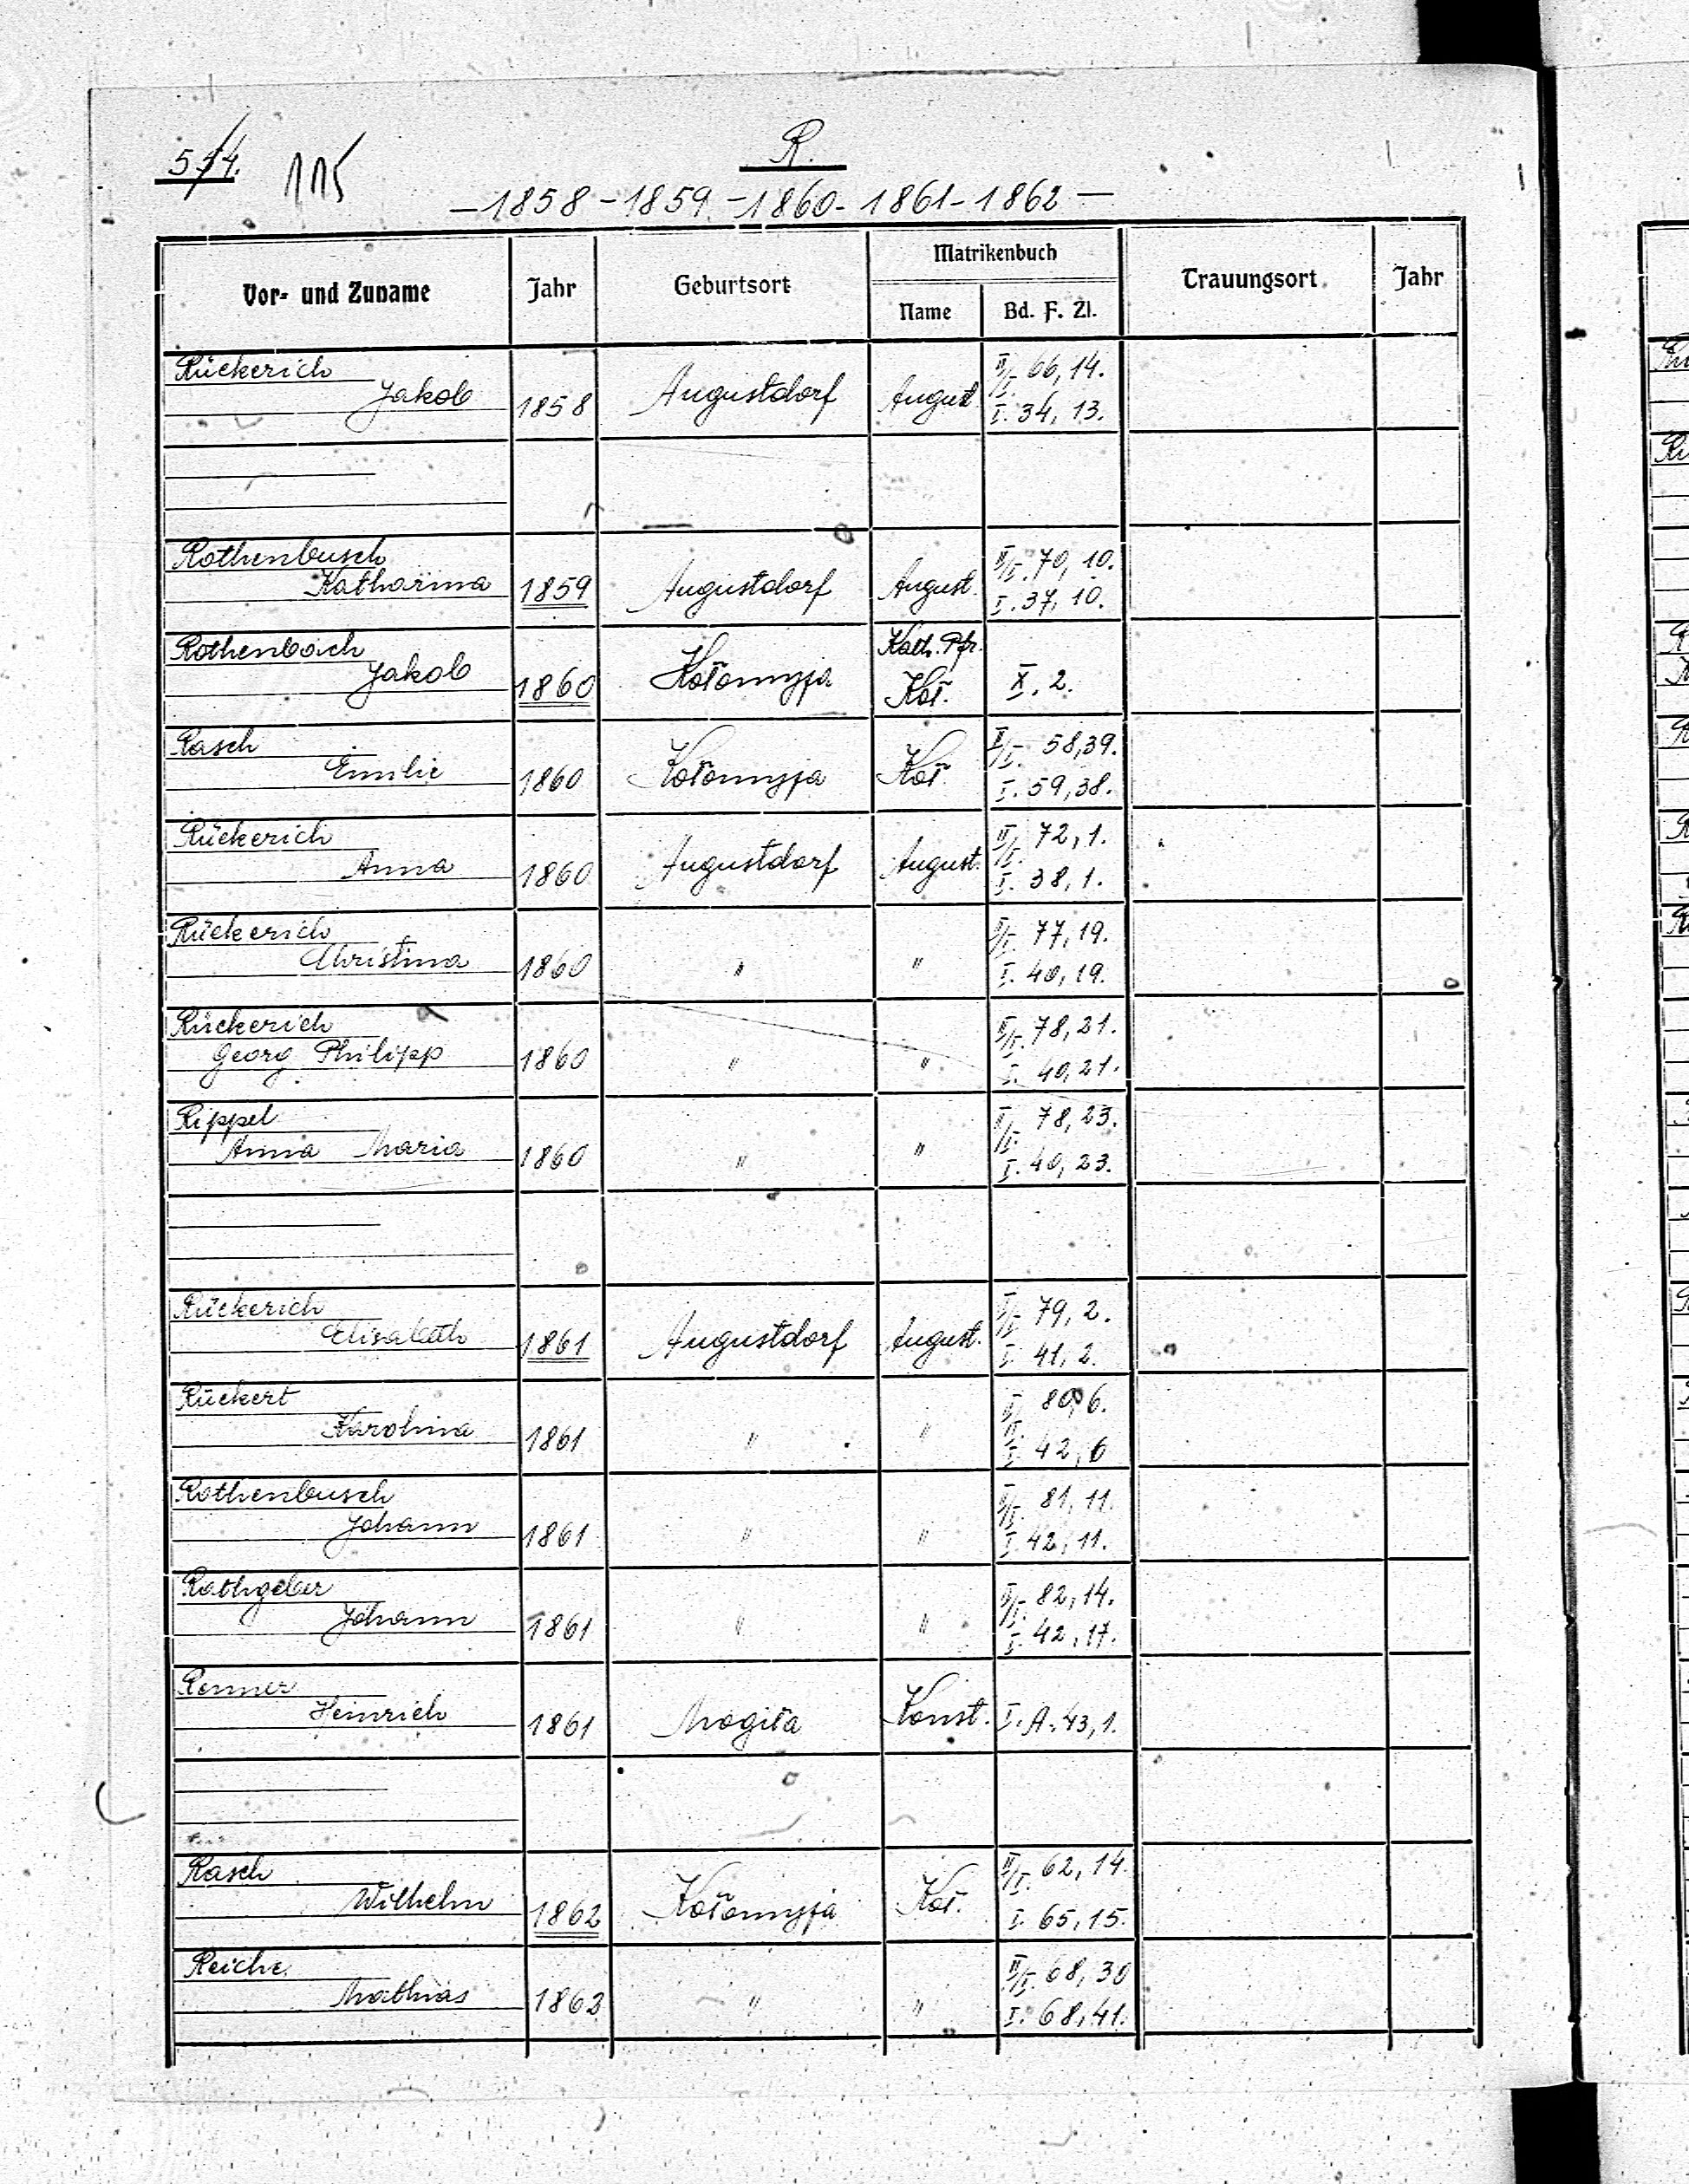 574. 115
R.
-1858-1859-1860-1861-1862-
Vor- und Zuname Jahr Geburtsort Matrikenbuch Trauungsort Jahr
Name Bd. F. Zl.
Rückerich II/I. 66, 14.
Jakob 1858 Augustdorf August. I. 34, 13.
Rothenbusch II/I. 70, 10.
Katharina 1859 Augustdorf August. I. 37, 10.
Rothenbach Kath. Pfr.
Jakob 1860 Kołomyja Koł. X. 2.
Rasch II/I. 58, 39.
Emilie 1860 Kołomyja Koł. I. 59, 38.
Rückerich II/I. 72, 1.
Anna 1860 Augustdorf August. I. 38, 1.
Rückerich II/I. 77, 19.
Christina 1860 " " I. 40, 19.
Rückerich II/I. 78, 21.
Georg Philipp 1860 " " I. 40, 21.
Rippel II/I. 78, 23.
Anna Maria 1860 " " I. 40, 23.
Rückerich II/I. 79, 2.
Elisabeth 1861 Augustdorf August. I. 41, 2.
Rückert 80, 6.
Karolina 1861 " " I. 42, 6
Rothenbusch II/I. 81, 11.
Johann 1861 " " I. 42, 11.
Rathgeber II/I. 82, 14.
Johann 1861 " " I. 42, 17.
Renner
Heinrich 1861 Mogiła Konst. I. A. 43, 1.
Rasch II/I. 62, 14.
Wilhelm 1862 Kołomyja Koł. I. 65, 15.
Reiche II/I. 68, 30
Mathias 1862 " " I. 68, 41.